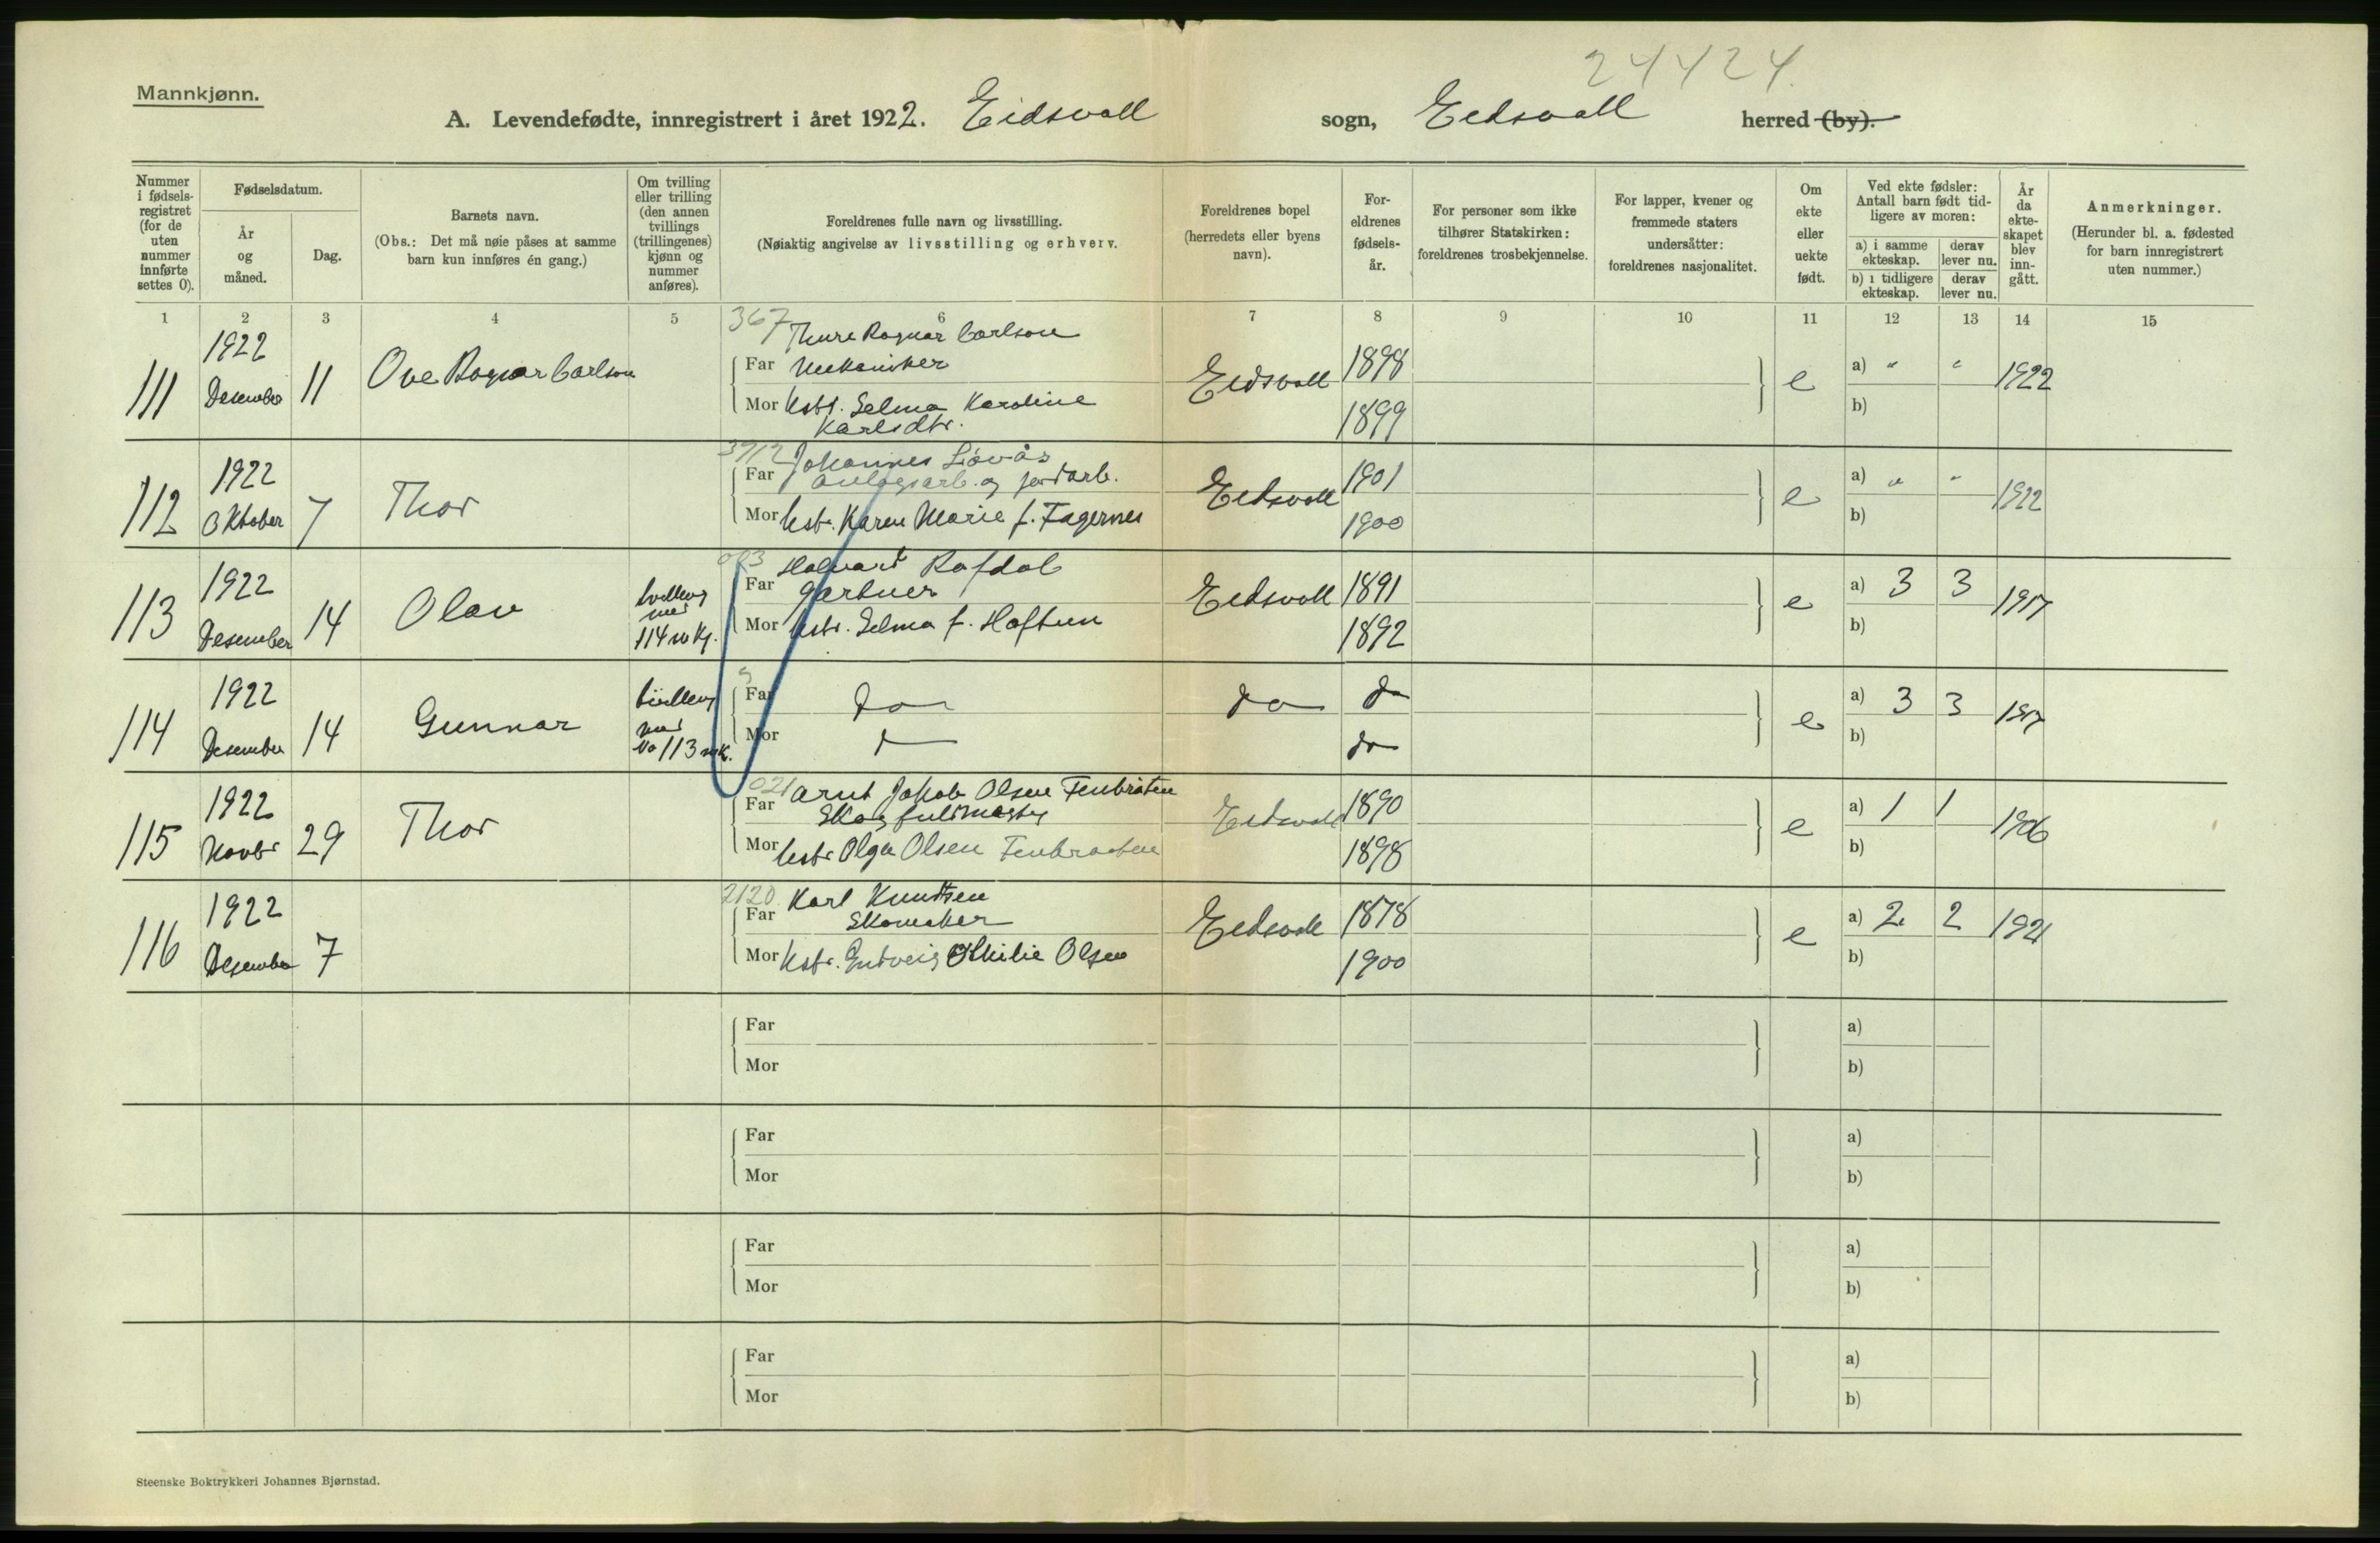 24424.
Mannkjønn.
A. Levendefødte, innregistrert i året 1922. Eidsvoll sogn, Eidsvoll herred (by).
Nummer i fødsels-registret (for de uten nummer innførte settes 0).
Fødselsdatum.
År og måned.
Dag.
Barnets navn.
(Obs.: Det må nøie påses at samme barn kun innføres én gang.)
Om tvilling eller trilling (den annen tvillings (trillingenes) kjønn og nummer anføres).
Foreldrenes fulle navn og livsstilling.
(Nøiaktig angivelse av livsstilling og erhverv.
Foreldrenes bopel (herredets eller byens navn).
For-eldrenes fødsels-år.
For personer som ikke tilhører Statskirken: foreldrenes trosbekjennelse.
For lapper, kvener og fremmede staters undersåtter: foreldrenes nasjonalitet.
Om ekte eller uekte født.
Ved ekte fødsler: Antall barn født tid-ligere av moren:
a) i samme ekteskap.
derav lever nu.
b) i tidligere ekteskap.
derav lever nu.
År da ekte-skapet blev inn-gått.
Anmerkninger.
(Herunder bl. a. fødested for barn innregistrert uten nummer.)
1 2 3 4 5 6 7 8 9 10 11 12 13 14 15
367
111 1922 Desember 11 Ove Ragnar Carlson
Thure Ragnar Carlson
Far Mekaniker
Mor Hstr. Selma Karoline
Karlsdtr.
Eidsvoll 1898 1899 e a) " " b) 1922
112 1922 Oktober 7 Thor
Johannes
Far og jordarb.
Mor Hstr. Karen Marie f. Fagernes
Eidsvoll 1901 1900 e a) " " b) 1922
113 1922 Desember 14 Olav
tvilling med 114 m kj.
Halvard Rafdal
Far Gartner
Mor Hstr. Selma f. Haftun
Eidsvoll 1891 1892 e a) 3 3 b) 1917
114 1922 Desember 14 Gunnar
tvilling med No 113 mk.
Far do
Mor
do do do e a) 3 3 b) 1917
021
115 1922 Novbr 29 Thor
Arnt Jakob Olsen Fenbråten
Far Skogfuldmægtig
Mor Hstr Olga Olsen Fenbraaten
Eidsvoll 1890 1898 e a) 1 1 b)
2120
116 1922 Desember 7
Karl Knudtsen
Far Skomaker
Mor Hstr. Othilie Olsen
Eidsvoll 1878 1900 e a) 2 2 b) 1921
Far
Mor
a)
b)
Far
Mor
a)
b)
Far
Mor
a)
b)
Far
Mor
a)
b)
Steenske Boktrykkeri Johannes Bjørnstad.